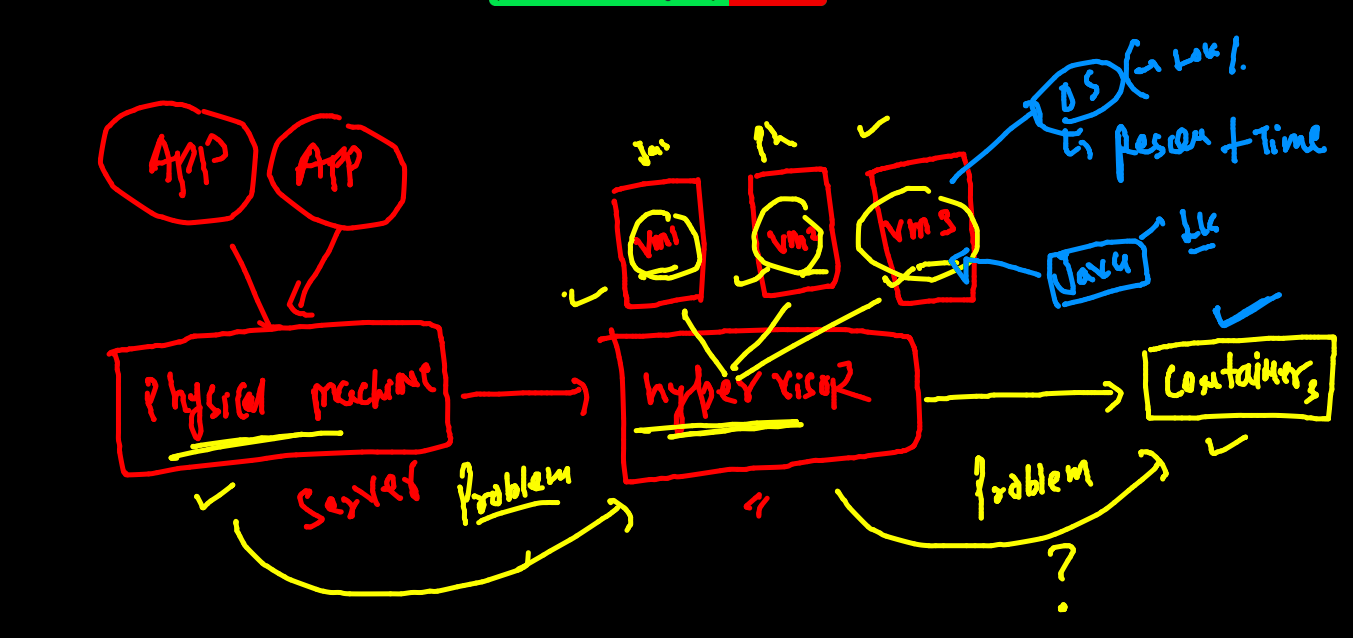 APP
APP
Physical machine
Server
Problem
Ph
vm1
vm2
vm3
hypervisor
OS
+ Time
Java
1k
Containers
Problem
?